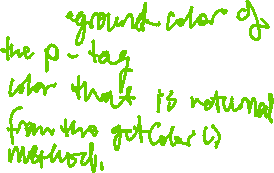 ground color of
the p-tag
color that is returned
from the getColor()
method.